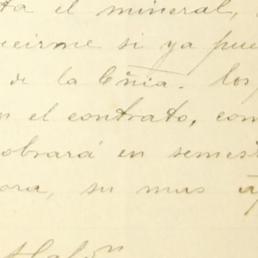 ta el mineral,
ecirme si ya pue
de la Cñia. los
n el contrato, com
obrará en semest
ora, su mas